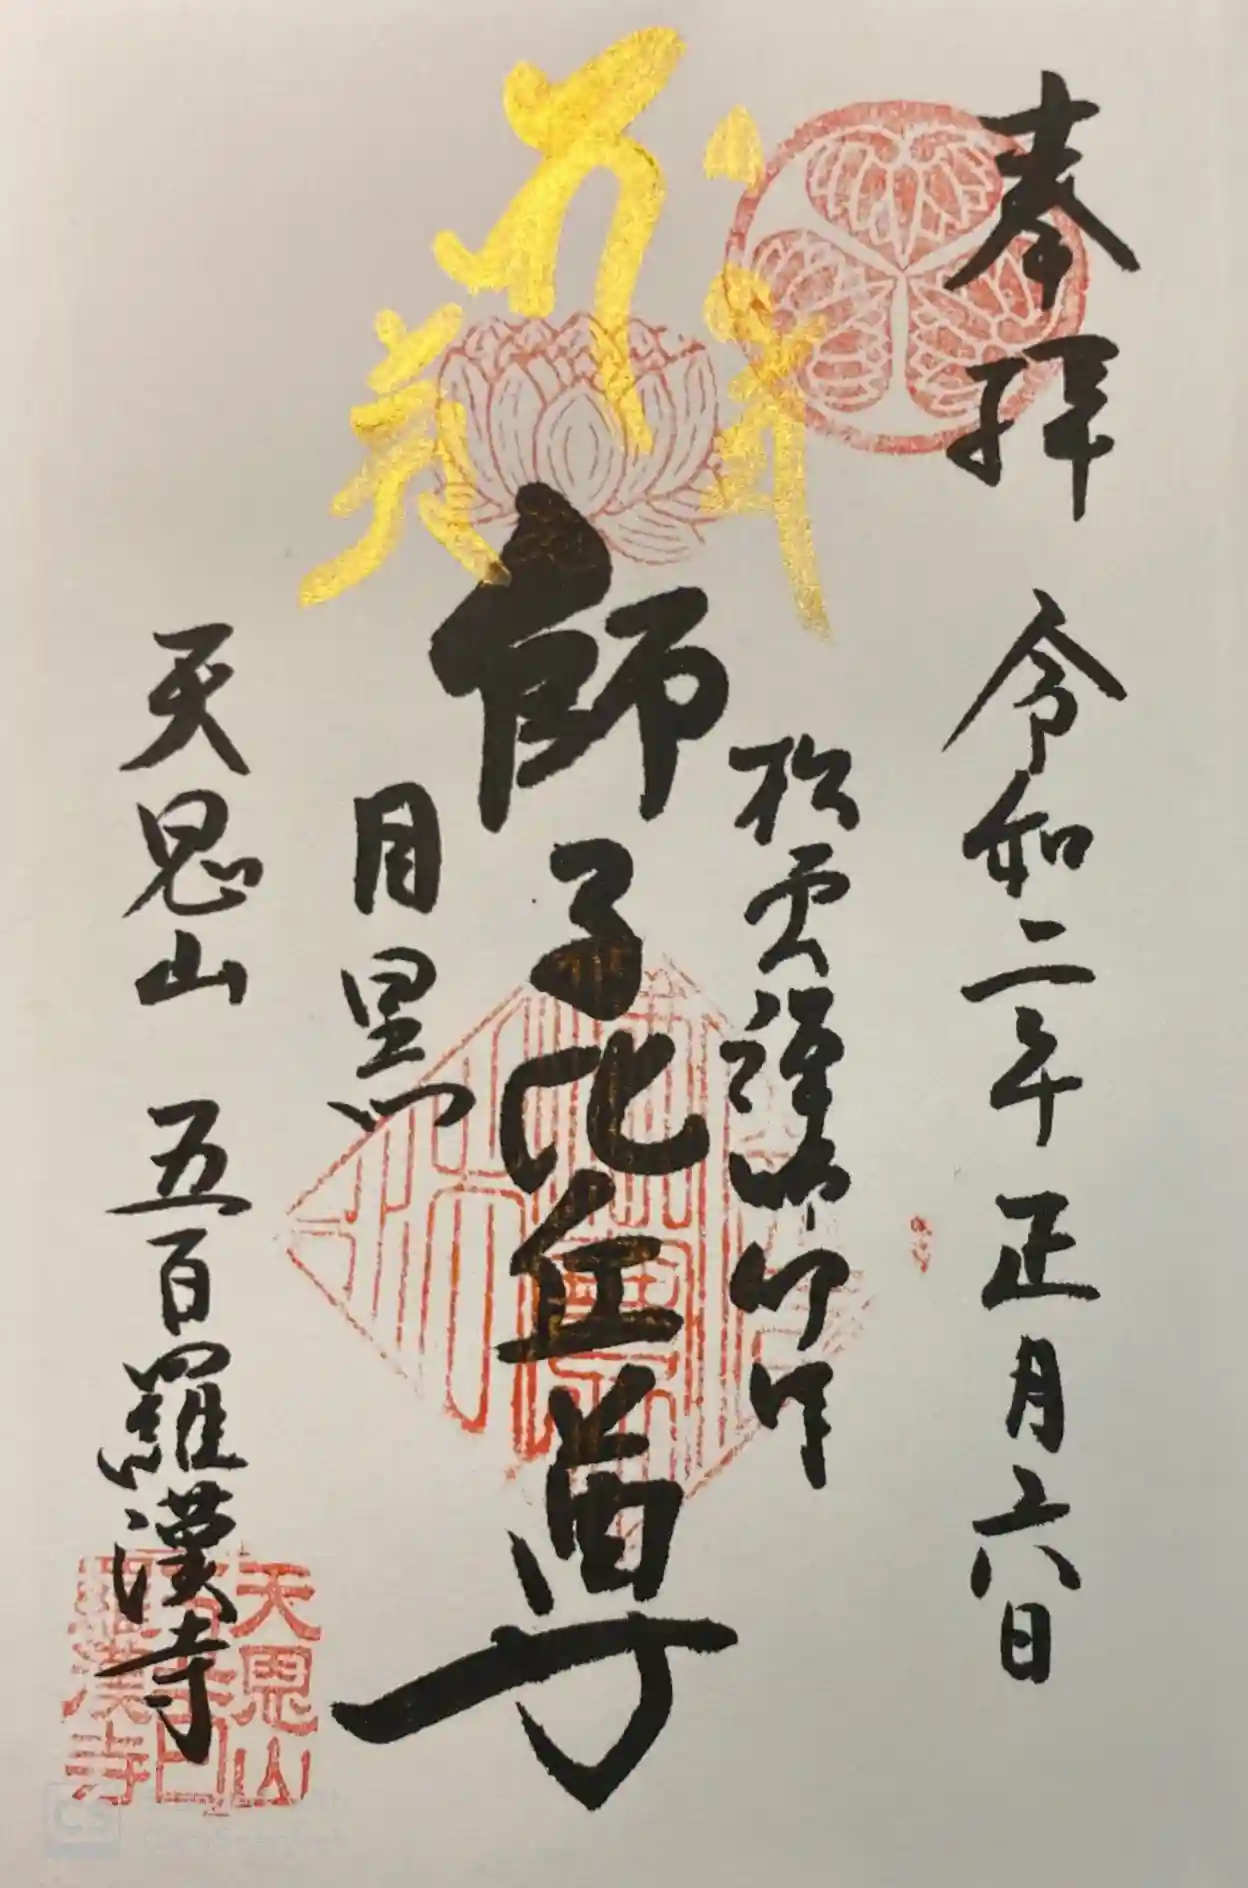 奉拝 令和二年正月六日
松雲禅師御作
師子比丘尊
目黒
天恩山 五百羅漢寺
天恩山
羅漢寺